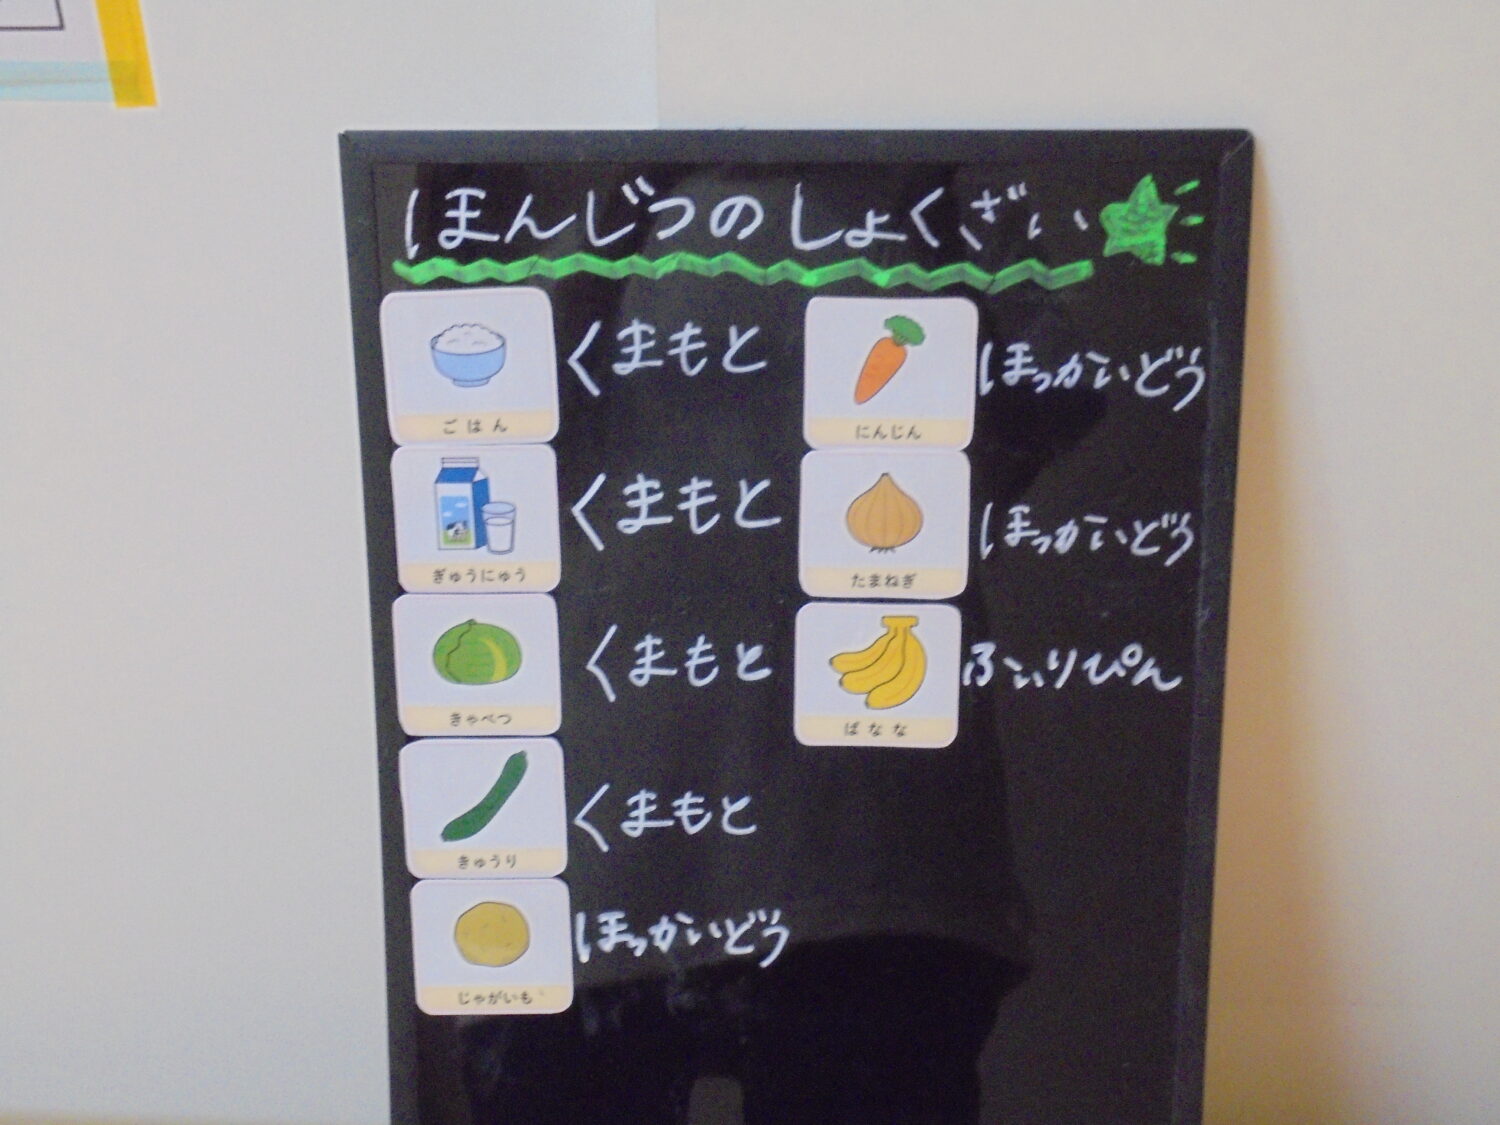 ほんじつのしょくざい
ごはん
くまもと
ぎゅうにゅう
くまもと
きゃべつ
くまもと
きゅうり
くまもと
じゃがいも
ほっかいどう
にんじん
ほっかいどう
たまねぎ
ほっかいどう
ばなな
ふぃりぴん